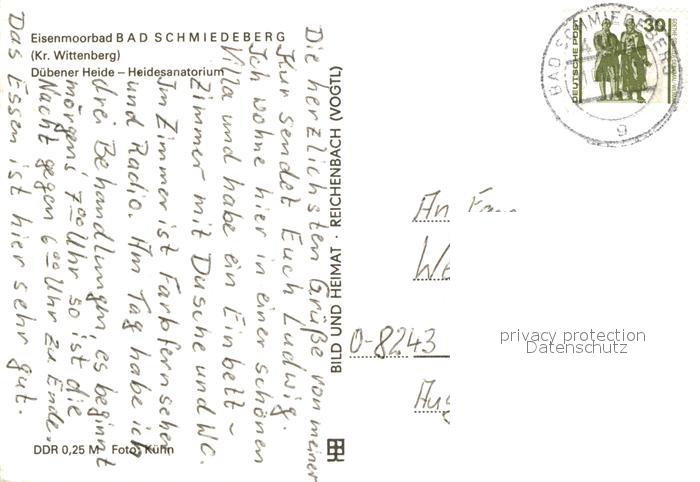 Eisenmoorbad BAD SCHMIEDEBERG
(Kr. Wittenberg)
Dübener Heide – Heidesanatorium
Die herzlichsten Grüße von meiner
Kur sendet Euch Ludwig.
Ich wohne hier in einer schönen
Villa und habe ein Einbett ~
Zimmer mit Dusche und WC.
Im Zimmer ist Farbfernseher
und Radio. Am Tag habe ich
drei Behandlungen, es beginnt
morgens 7ºº Uhr so ist die
Nacht gegen 6ºº Uhr zu Ende.
Das Essen ist hier sehr gut.
DDR 0,25 M Foto: Kühn
BILD UND HEIMAT · REICHENBACH (VOGTL)
BAD SCHMIEDEBERG
g
DEUTSCHE POST
30
An
O-8243
privacy protection
Datenschutz